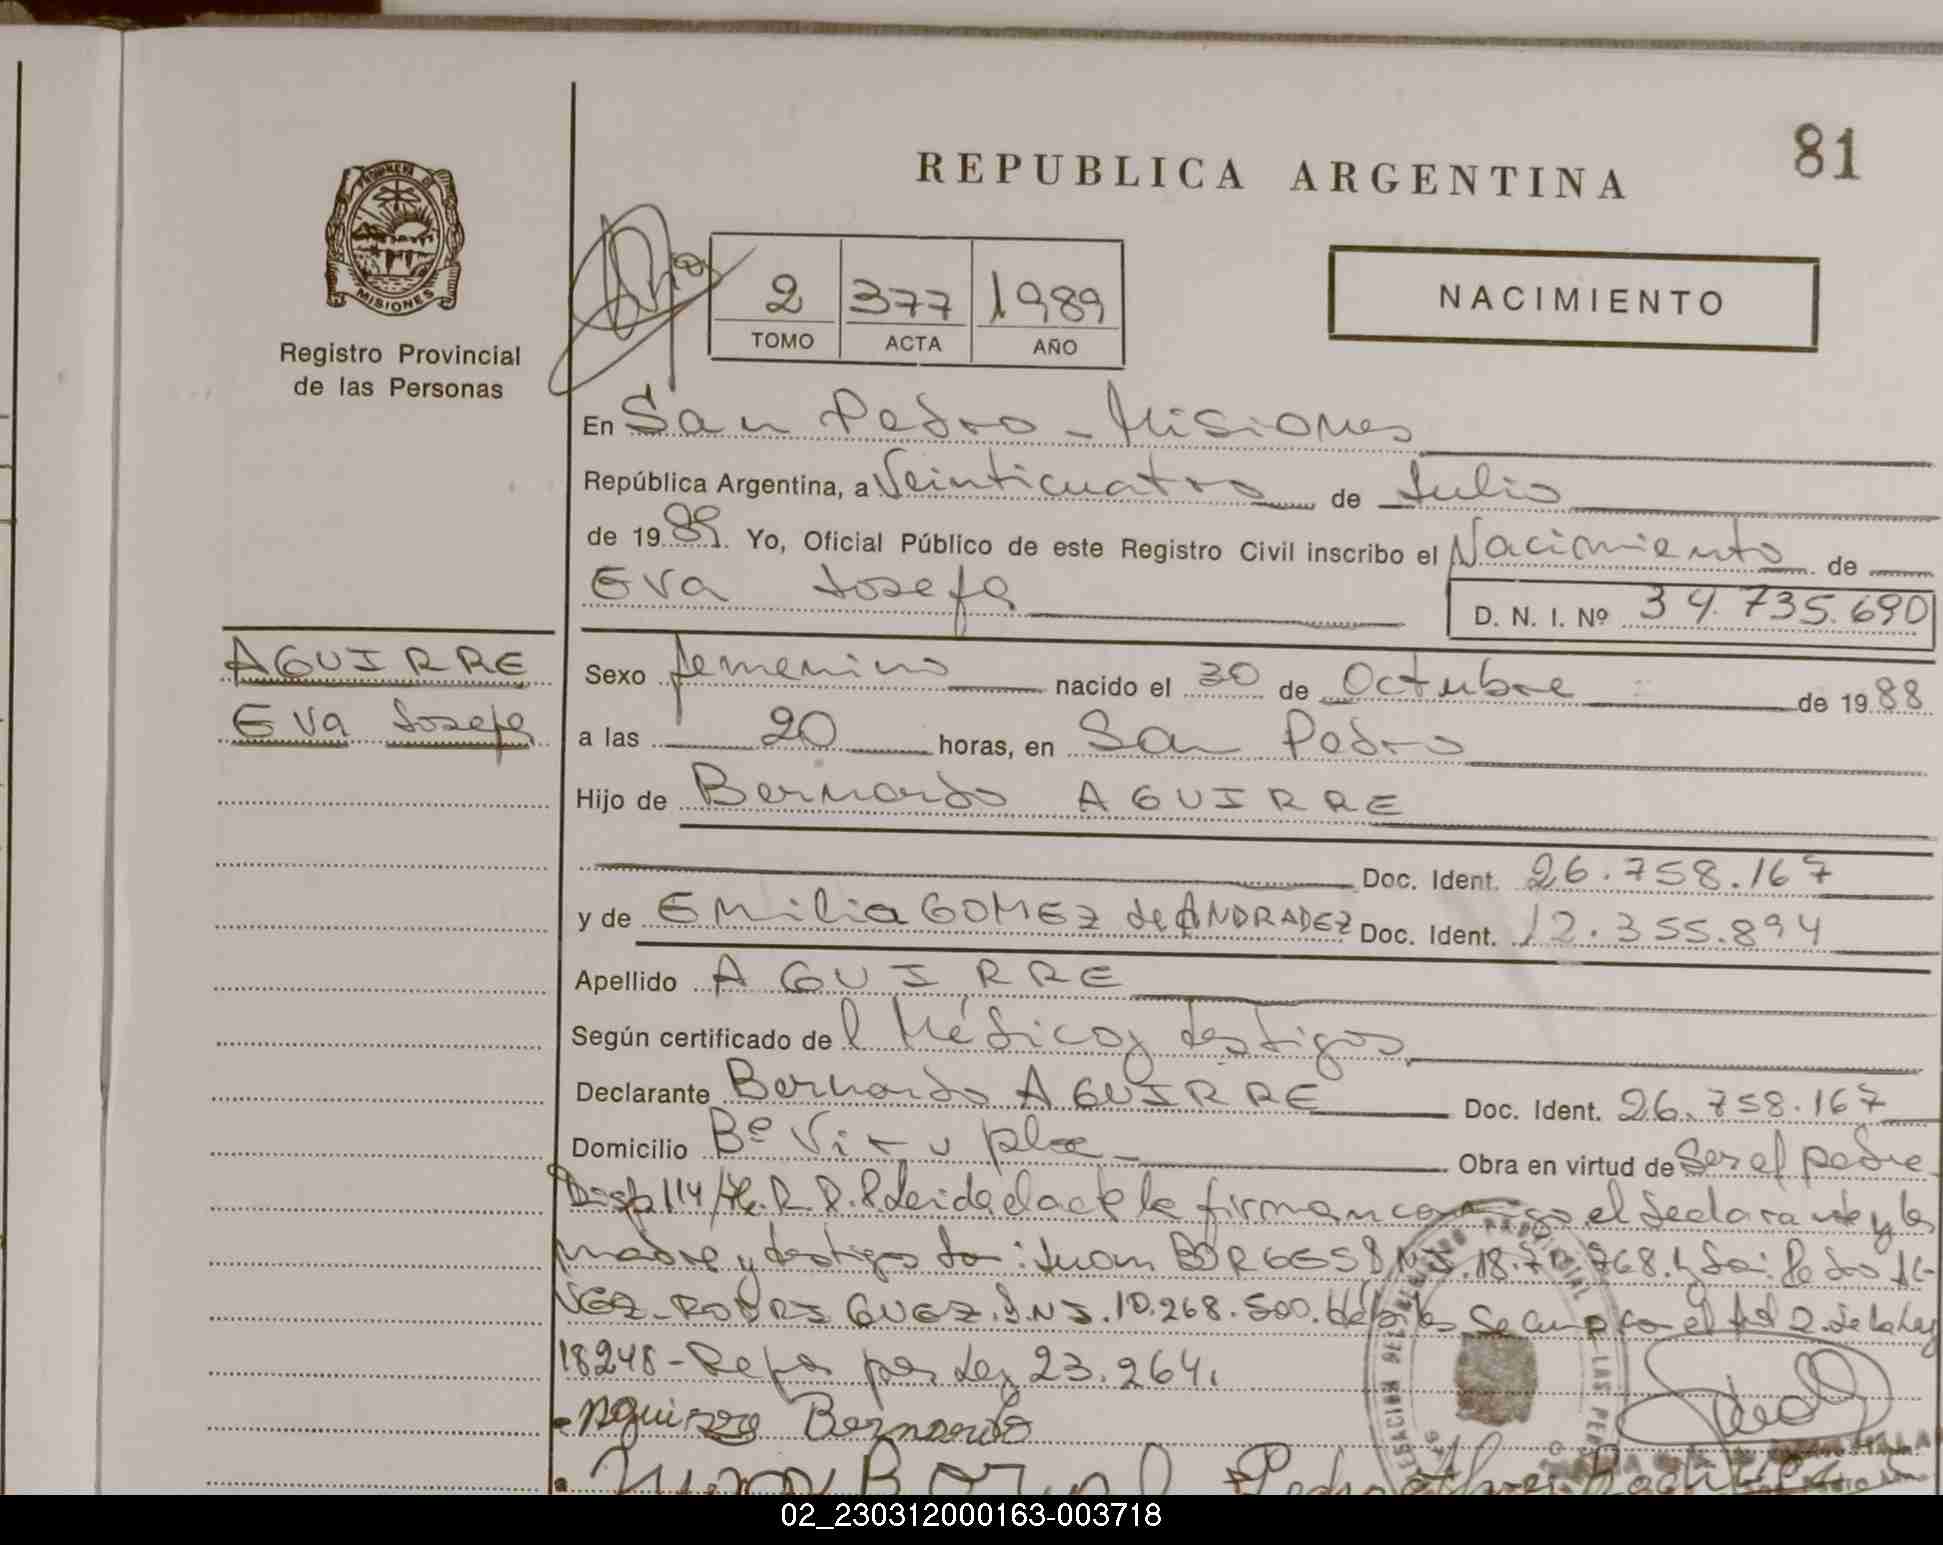 81
REPUBLICA ARGENTINA
PROVINCIA DE
MISIONES
Registro Provincial
de las Personas
2 377 1989
TOMO ACTA AÑO
NACIMIENTO
En San Pedro - Misiones
República Argentina, a Veinticuatro de Julio
de 1989. Yo, Oficial Público de este Registro Civil inscribo el Nacimiento de
Eva Josefa
D. N. I. Nº 34.735.690
AGUIRRE
Eva Josefa
Sexo femenino nacido el 30 de Octubre de 1988
a las 20 horas, en San Pedro
Hijo de Bernardo AGUIRRE
Doc. Ident. 26.758.167
y de Emilia GOMEZ de ANDRADEZ Doc. Ident. 12.355.894
Apellido AGUIRRE
Según certificado del Médico y testigos
Declarante Bernardo AGUIRRE Doc. Ident. 26.758.167
Domicilio Bº Viru Obra en virtud de Ser el padre
Disp 114/ R.P.P. Leida el acta la firman conmigo el declarante y la
madre y testigos Don: Juan BORGES DNI. 18. 768. y Don: Pedro
VEZ - RODRIGUEZ. DNI. 10.268.500. se cump con el Art 2 de la Ley
18248 - Refor por Ley 23.264.
Aguirre Bernardo
Juan Pedro
02_230312000163-003718